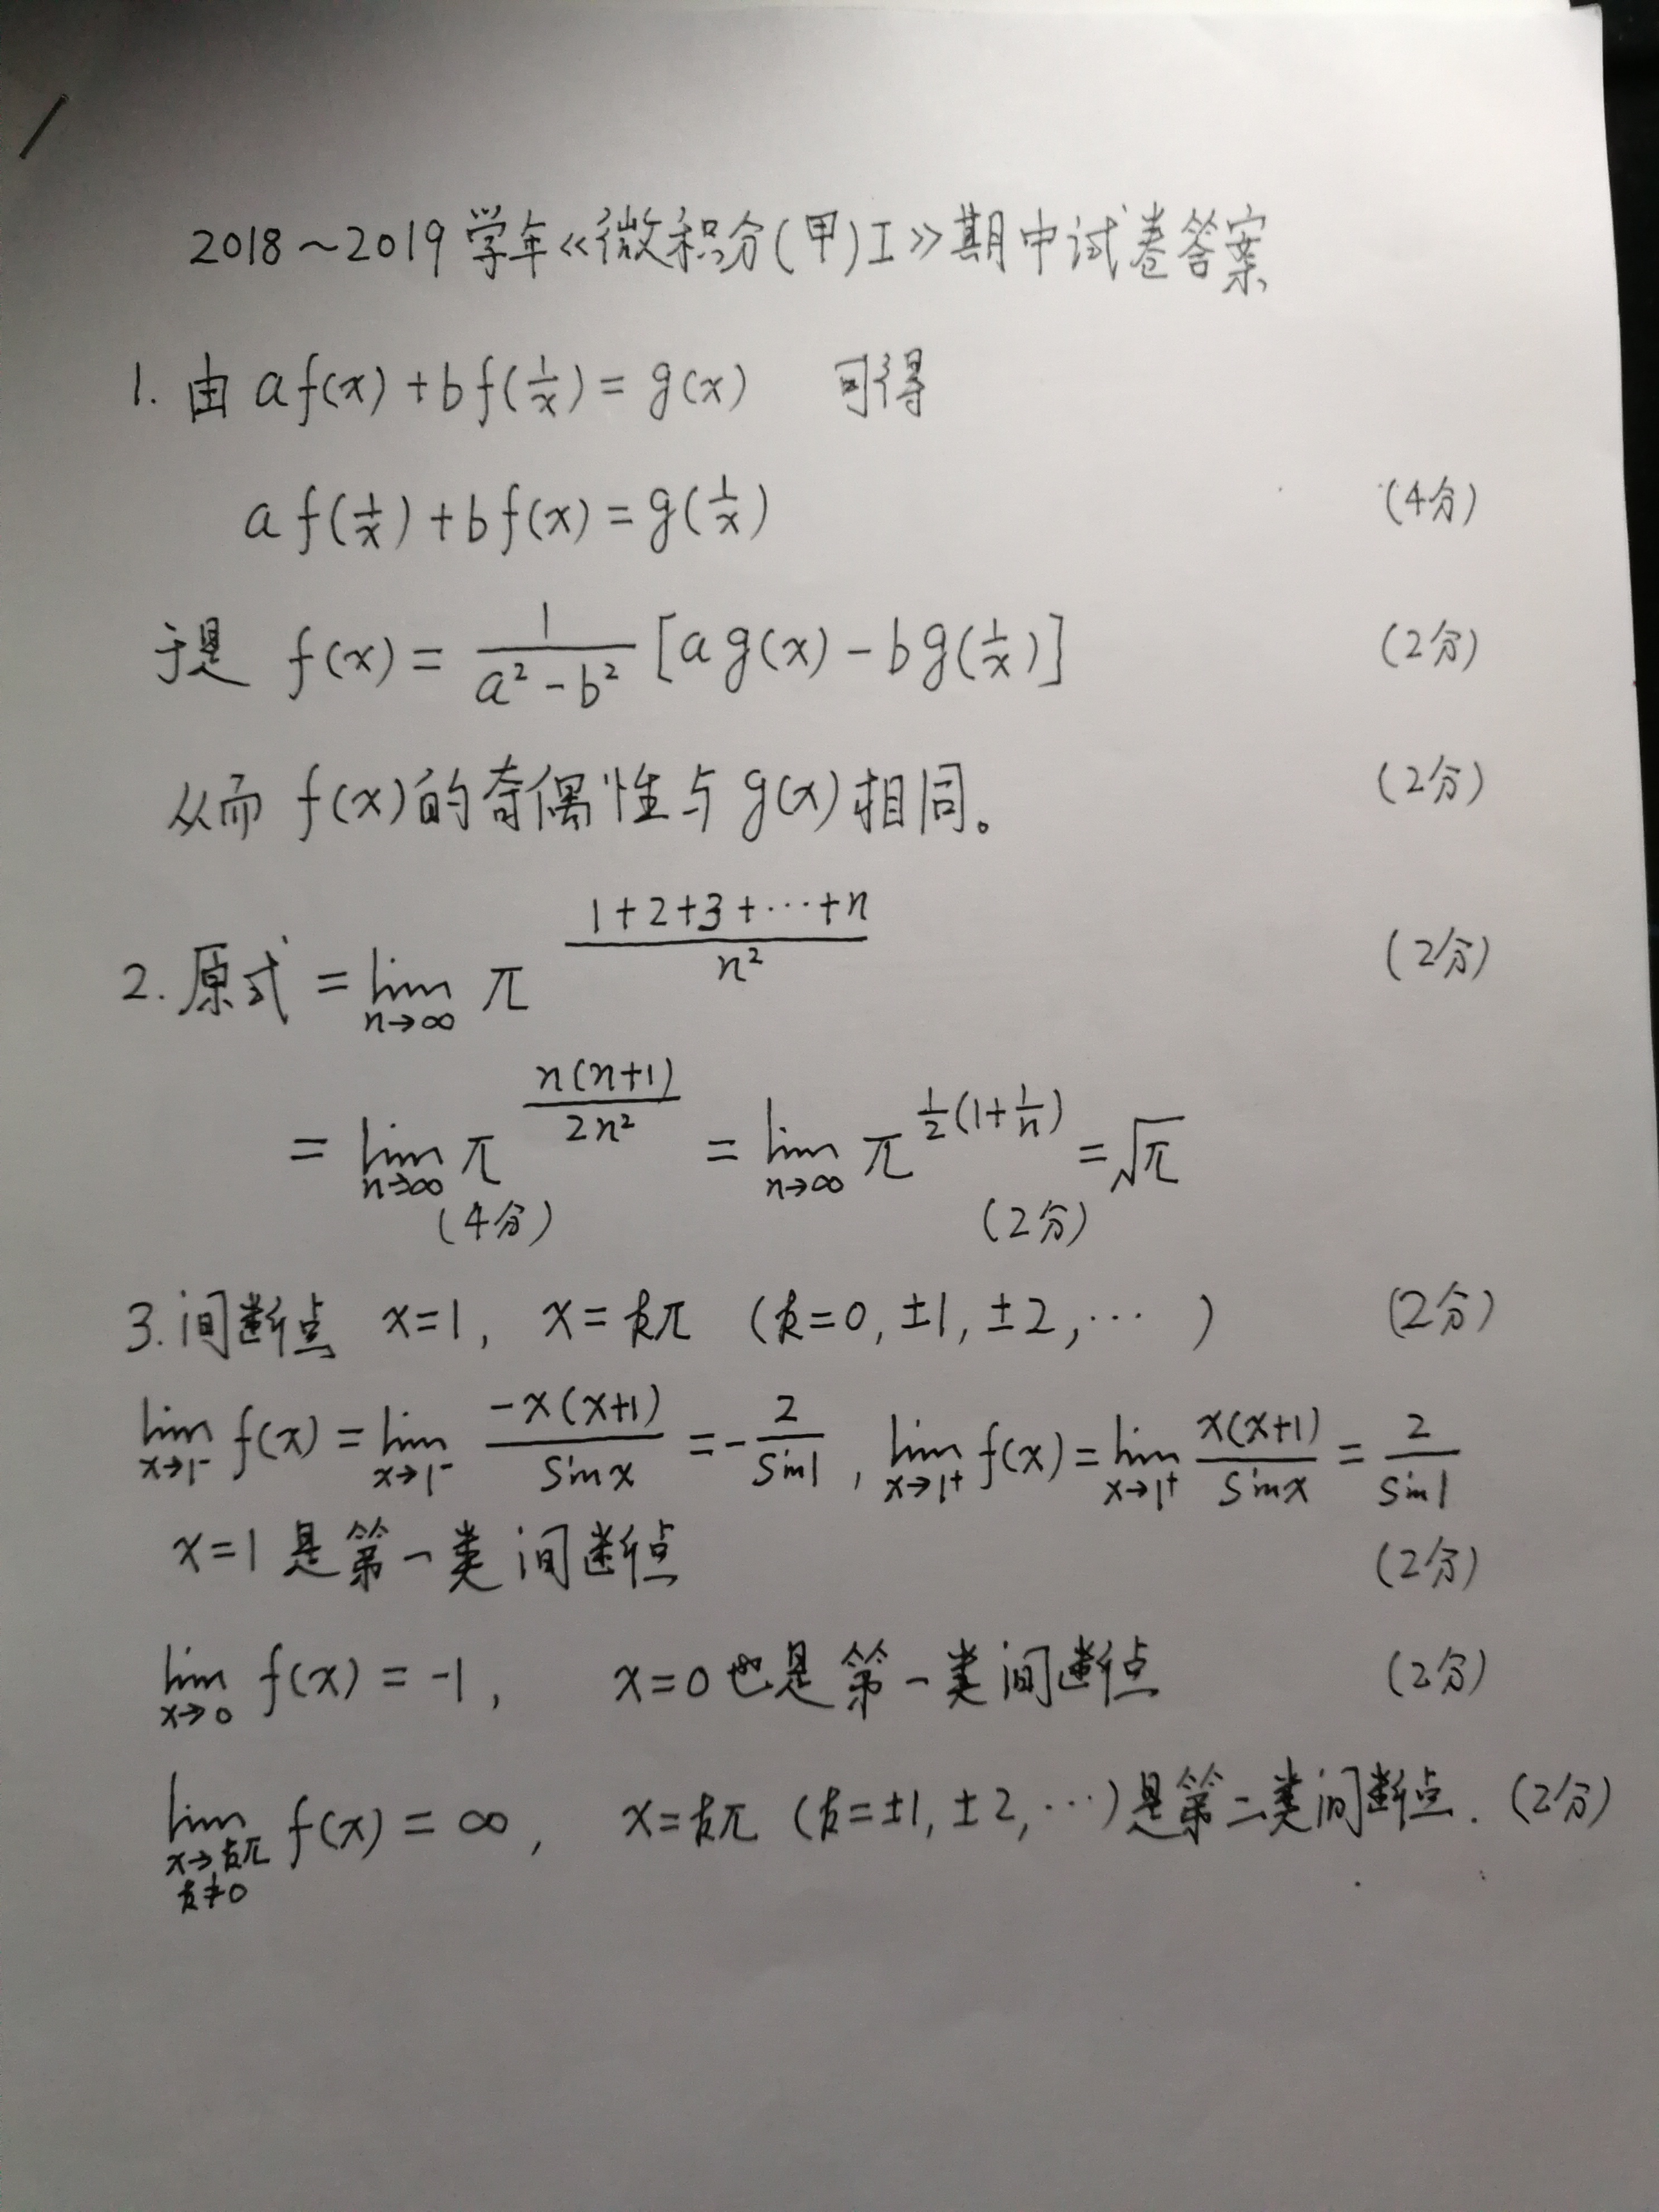 2018～2019学年《微积分(甲)I》期中试卷答案
1. 由 af(x)+bf(1/x)=g(x) 可得
af(1/x)+bf(x)=g(1/x) (4分)
于是 f(x)=1/(a²-b²)[ag(x)-bg(1/x)] (2分)
从而 f(x)的奇偶性与g(x)相同。 (2分)
2. 原式 = lim_{n→∞} π^{(1+2+3+⋯+n)/n²} (2分)
= lim_{n→∞} π^{n(n+1)/2n²} = lim_{n→∞} π^{1/2(1+1/n)} = √π
(4分) (2分)
3. 间断点 x=1, x=kπ (k=0,±1,±2,⋯ ) (2分)
lim_{x→1⁻} f(x) = lim_{x→1⁻} -x(x+1)/sinx = -2/sin1, lim_{x→1⁺} f(x) = lim_{x→1⁺} x(x+1)/sinx = 2/sin1
x=1 是第一类间断点 (2分)
lim_{x→0} f(x) = -1, x=0也是第一类间断点 (2分)
lim_{x→kπ k≠0} f(x) = ∞, x=kπ (k=±1,±2,⋯)是第二类间断点. (2分)